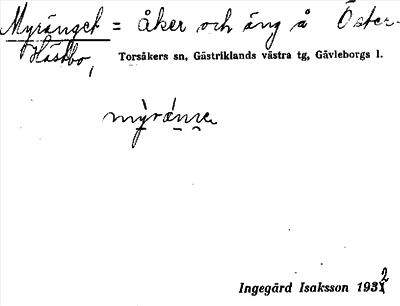 Myränget = åker och äng å Öster-
Hästbo, Torsåkers sn, Gästriklands västra tg, Gävleborgs l.
Ingegärd Isaksson 1932